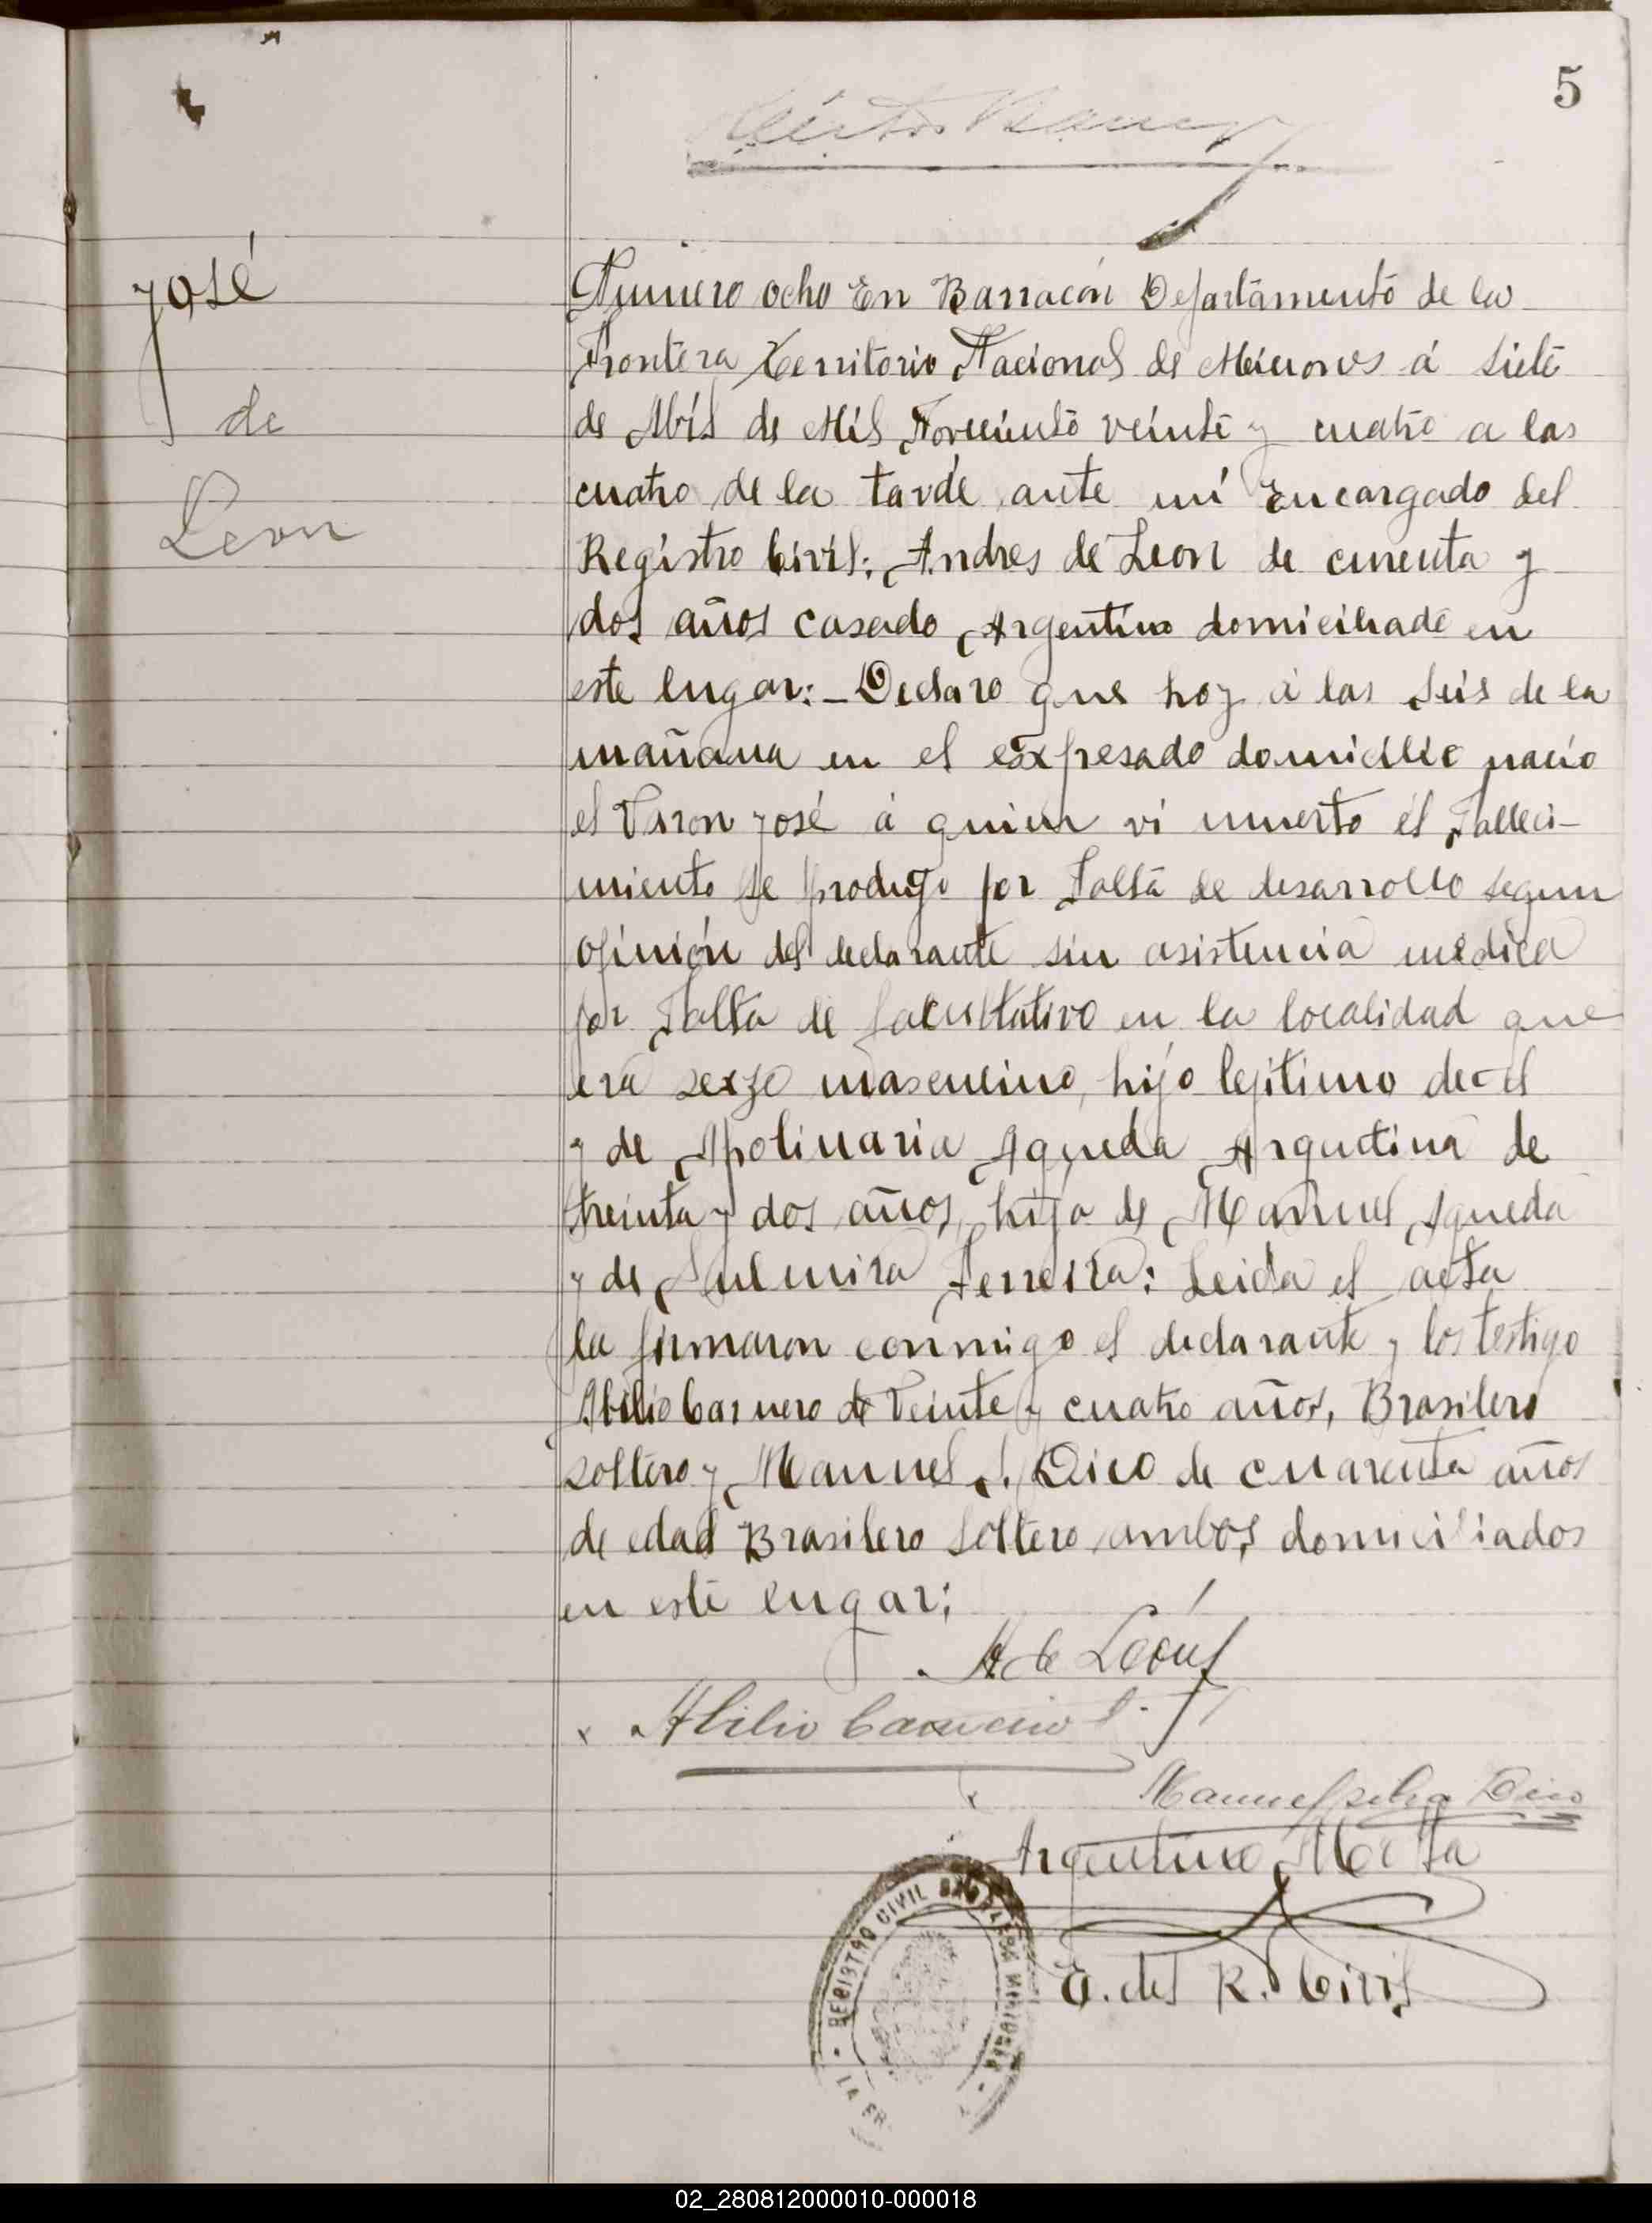 5
José
de
Leon
Numero ocho En Barracón Departamento de la
Frontera Territorio Nacional de Misiones á siete
de Abril de Mil Noveciento veinte y cuatro a las
cuatro de la tarde ante mí Encargado del
Registro Civil; Andres de Leon de cincuenta y
dos años casado Argentino domiciliado en
este lugar: - Declaro que hoy á las seis de la
mañana en el expresado domicilio nacio
el Varon José á quien vi muerto él Falleci-
miento se produjo por Falta de desarrollo segun
opinión del declarante sin asistencia medica
por Falta de facultativo en la localidad que
era sexso masculino, hijo lejitimo de el
y de Apolinaria Agueda Argentina de
treinta y dos años, hija de Manuel Agueda
y de Ferreira: Leida el acta
la firmaron conmigo el declarante y los testigo
Abilio Carnero de Veinte y cuatro años, Brasilero
soltero y Manuel S. Dico de cuarenta años
de edad Brasilero Soltero ambos domiciliados
en este lugar;
A de León
x Abilio
x Manuel silva Dico
Argentino Motta
E. del R. Civil
REGISTRO CIVIL
02_280812000010-000018